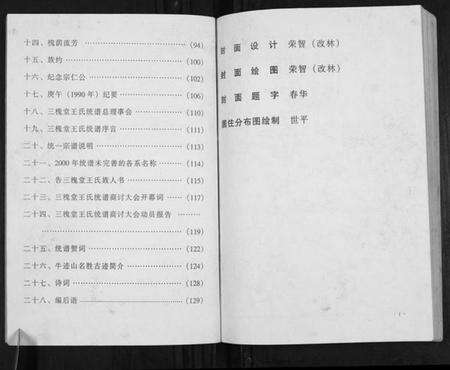 十四、槐荫流芳 …………………… (94)
十五、族约 …………………… (100)
十六、纪念宗仁公 …………………… (102)
十七、庚午(1990年)纪要 …………………… (106)
十八、三槐堂王氏统谱总理事会 …………………… (110)
十九、三槐堂王氏统谱序言 …………………… (111)
二十、统一宗谱说明 …………………… (113)
二十一、2000年统谱未完善的各系名称 ………… (114)
二十二、告三槐堂王氏族人书 …………………… (115)
二十三、三槐堂王氏统谱商讨大会开幕词 ……… (117)
二十四、三槐堂王氏统谱商讨大会动员报告 ………
…………………… (119)
二十五、统谱贺词 …………………… (122)
二十六、牛迹山名胜古迹简介 …………………… (124)
二十七、诗词 …………………… (128)
二十八、编后语 …………………… (129)
封面设计 荣智(改林)
封面绘图 荣智(改林)
封面题字 春华
居住分布图绘制 世平